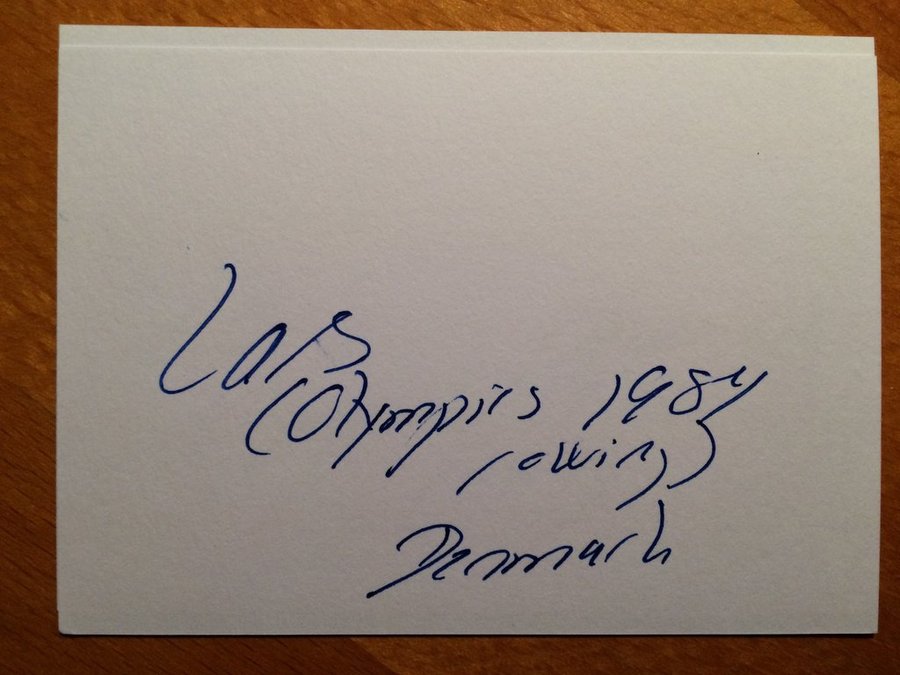 Lars
(Olympics 1984
rowing)
Denmark